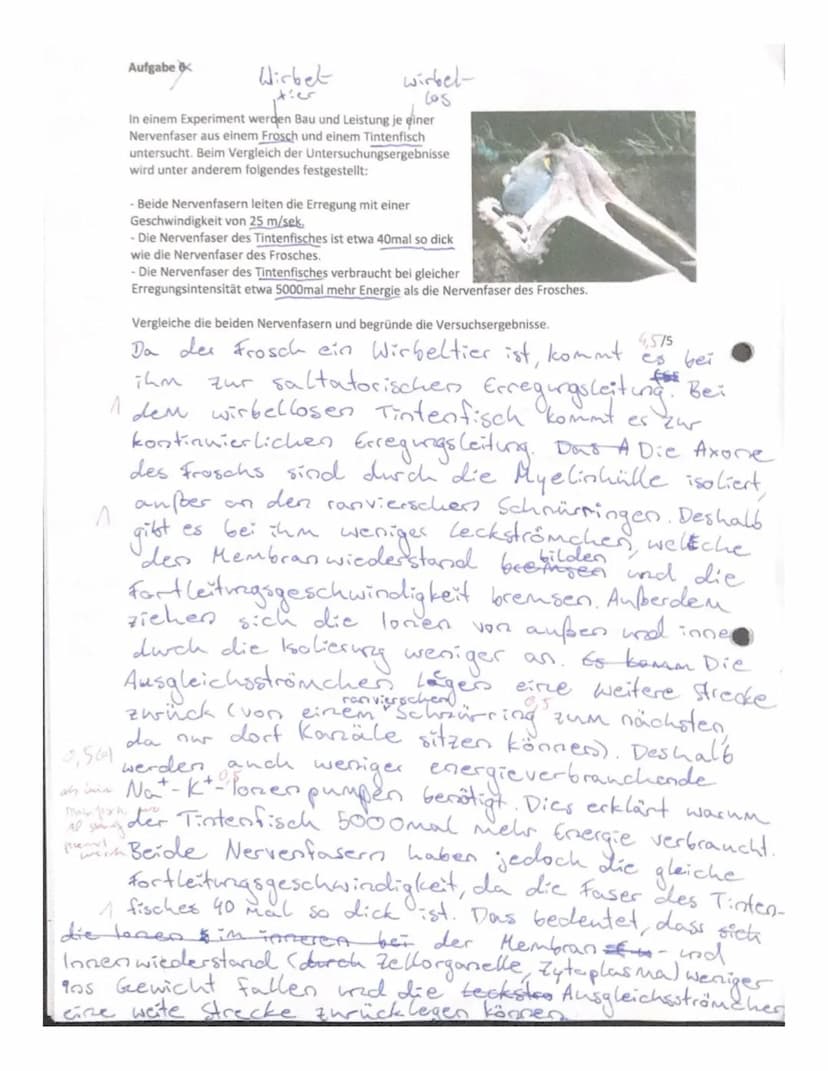 Aufgabe 6
Wirbel-
tier
wirbel-
los
In einem Experiment werden Bau und Leistung je einer
Nervenfaser aus einem Frosch und einem Tintenfisch
untersucht. Beim Vergleich der Untersuchungsergebnisse
wird unter anderem folgendes festgestellt:
- Beide Nervenfasern leiten die Erregung mit einer
Geschwindigkeit von 25 m/sek.
- Die Nervenfaser des Tintenfisches ist etwa 40mal so dick
wie die Nervenfaser des Frosches.
- Die Nervenfaser des Tintenfisches verbraucht bei gleicher
Erregungsintensität etwa 5000mal mehr Energie als die Nervenfaser des Frosches.
Vergleiche die beiden Nervenfasern und begründe die Versuchsergebnisse.
4,5/5
Da der Frosch ein Wirbeltier ist, kommt es bei
ihm zur saltatorischen Erregungsleitung. Bei
1 dem wirbellosen Tintenfisch kommt es zur
kontinuierlichen Erregungsleitung. Das A Die Axone
des Froschs sind durch die Myelinhülle isoliert,
außer an den ranvierschen Schnürringen. Deshalb
1 gibt es bei ihm weniger Leckströmchen, welche
den Membranwiederstand bilden und die
Fortleitungsgeschwindigkeit bremsen. Außerdem
ziehen sich die Ionen von außen und innen
durch die Isolierung weniger an. Es komm Die
Ausgleichsströmchen legen eine weitere Strecke
zurück (von einem ranvierschen Schnürring zum nächsten,
0,5
da nur dort Kanäle sitzen können). Deshalb
werden auch weniger energieverbrauchende
0,5
Na⁺-K⁺-Ionenpumpen benötigt. Dies erklärt warum
der Tintenfisch 5000mal mehr Energie verbraucht.
Beide Nervenfasern haben jedoch die gleiche
Fortleitungsgeschwindigkeit, da die Faser des Tinten-
1 fisches 40 mal so dick ist. Das bedeutet, dass sich
die Ionen im inneren bei der Membran- und
Innenwiederstand (durch Zellorganelle, Zytoplasma) weniger
ins Gewicht fallen und die Leckströ Ausgleichsströmchen
eine weite Strecke zurücklegen können